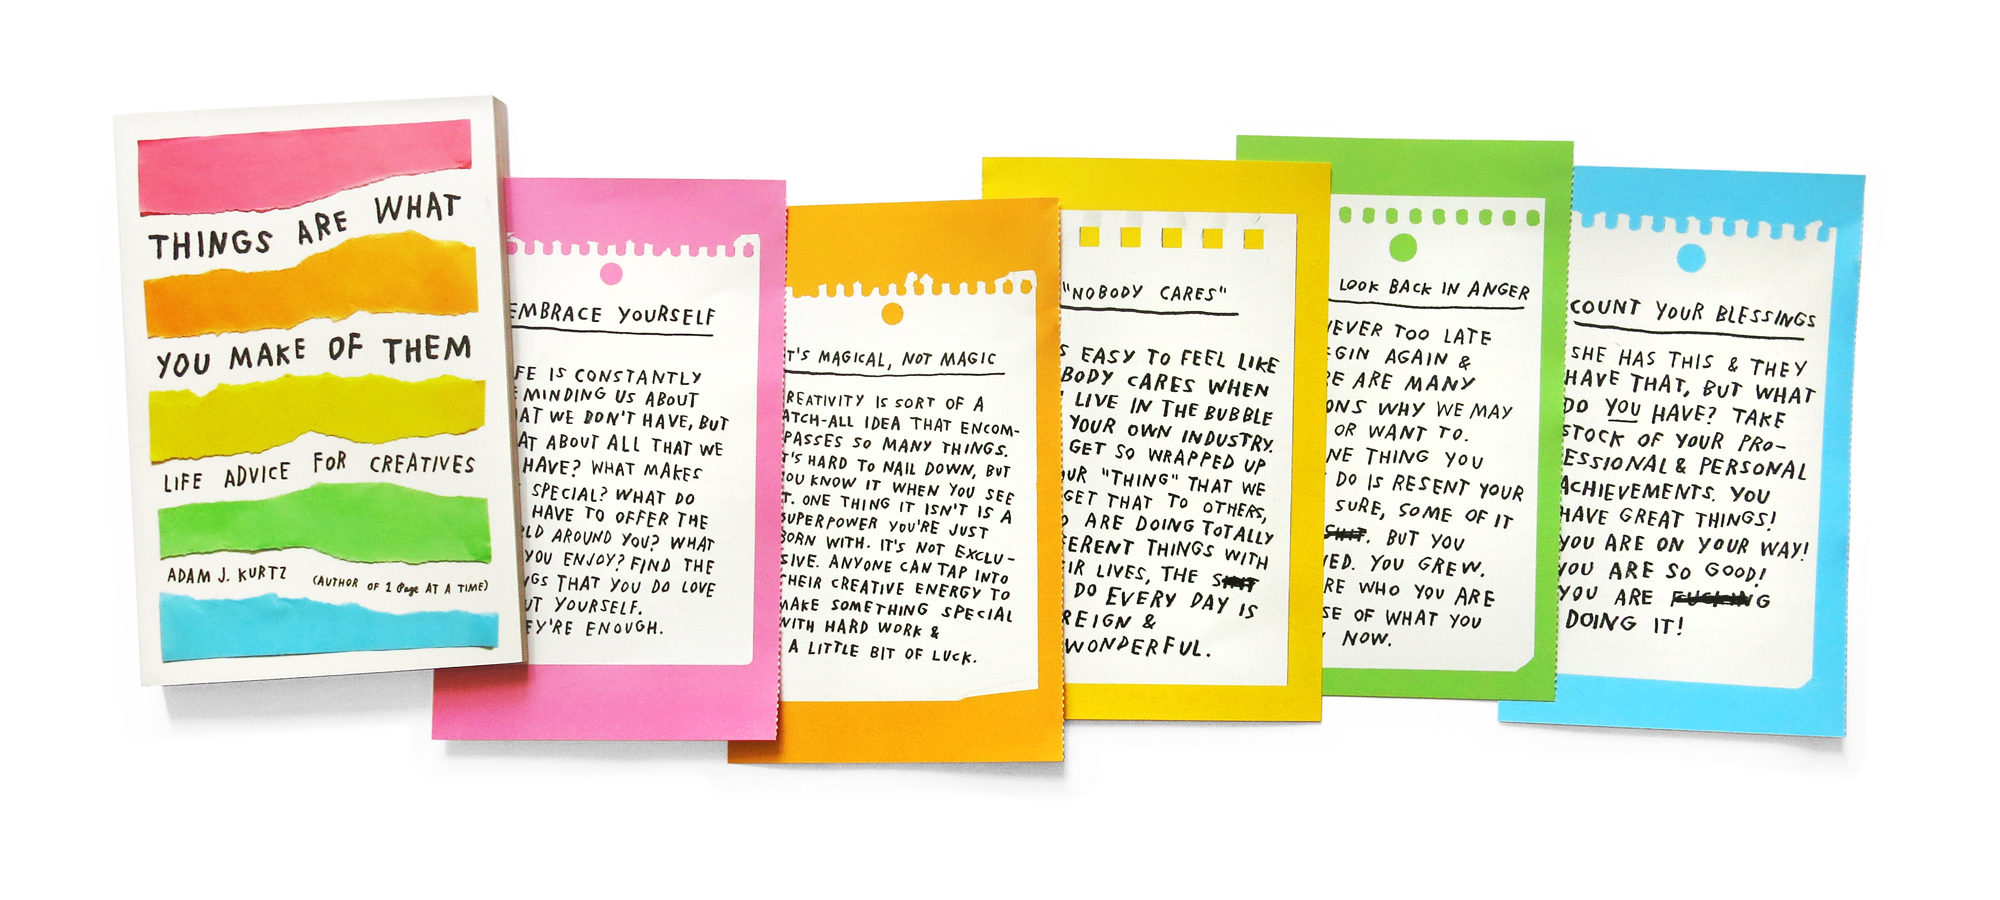 THINGS ARE WHAT
YOU MAKE OF THEM
LIFE ADVICE FOR CREATIVES
ADAM J. KURTZ (AUTHOR OF 1 Page AT A TIME)
EMBRACE YOURSELF
FE IS CONSTANTLY
MINDING US ABOUT
AT WE DON'T HAVE, BUT
AT ABOUT ALL THAT WE
HAVE? WHAT MAKES
SPECIAL? WHAT DO
HAVE TO OFFER THE
LD AROUND YOU? WHAT
YOU ENJOY? FIND THE
NGS THAT YOU DO LOVE
UT YOURSELF.
EY'RE ENOUGH.
T'S MAGICAL, NOT MAGIC
REATIVITY IS SORT OF A
ATCH-ALL IDEA THAT ENCOM-
PASSES SO MANY THINGS.
T'S HARD TO NAIL DOWN, BUT
YOU KNOW IT WHEN YOU SEE
T. ONE THING IT ISN'T IS A
SUPERPOWER YOU'RE JUST
BORN WITH. IT'S NOT EXCLU-
SIVE. ANYONE CAN TAP INTO
THEIR CREATIVE ENERGY TO
MAKE SOMETHING SPECIAL
WITH HARD WORK &
A LITTLE BIT OF LUCK.
"NOBODY CARES"
S EASY TO FEEL LIKE
BODY CARES WHEN
LIVE IN THE BUBBLE
YOUR OWN INDUSTRY.
GET SO WRAPPED UP
UR "THING" THAT WE
GET THAT TO OTHERS,
O ARE DOING TOTALLY
FERENT THINGS WITH
EIR LIVES, THE
DO EVERY DAY IS
REIGN &
WONDERFUL.
LOOK BACK IN ANGER
EVER TOO LATE
GIN AGAIN &
RE ARE MANY
ONS WHY WE MAY
OR WANT TO.
NE THING YOU
DO IS RESENT YOUR
SURE, SOME OF IT
. BUT YOU
VED. YOU GREW.
RE WHO YOU ARE
SE OF WHAT YOU
NOW.
COUNT YOUR BLESSINGS
SHE HAS THIS & THEY
HAVE THAT, BUT WHAT
DO YOU HAVE? TAKE
STOCK OF YOUR PRO-
ESSIONAL & PERSONAL
ACHIEVEMENTS. YOU
HAVE GREAT THINGS!
YOU ARE ON YOUR WAY!
YOU ARE SO GOOD!
YOU ARE
DOING IT!